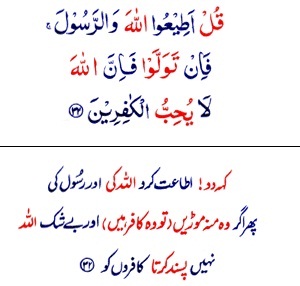 قُلْ اَطِيْعُوا اللّٰهَ وَالرَّسُوْلَ ۚ
فَاِنْ تَوَلَّوْا فَاِنَّ اللّٰهَ
لَا يُحِبُّ الْكٰفِرِيْنَ ﴿۳۲﴾
کہہ دو! اطاعت کرو اللہ کی اور رسُول کی
پھر اگر وہ منہ موڑیں (تو وہ کافر ہیں) اور بے شک اللہ
نہیں پسند کرتا کافروں کو ﴿۳۲﴾